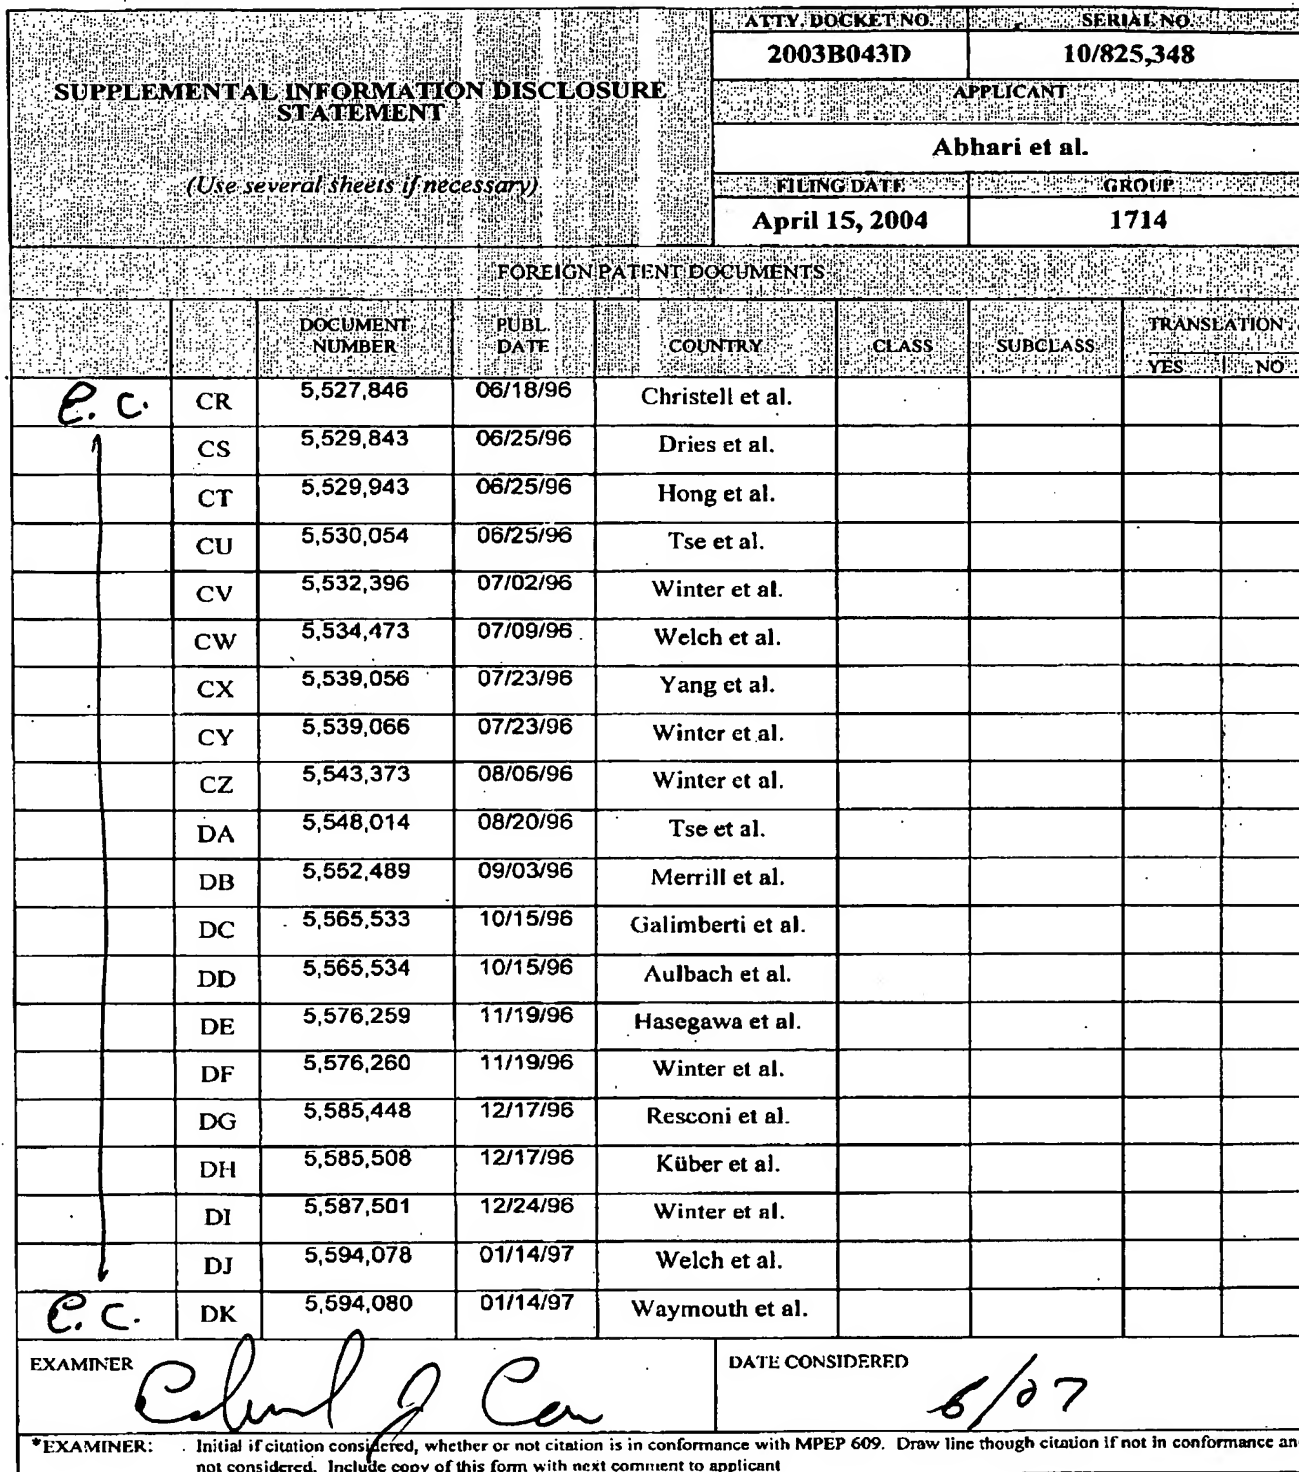 ATTY. DOCKET NO. SERIAL NO.
2003B043D 10/825,348
SUPPLEMENTAL INFORMATION DISCLOSURE
STATEMENT
APPLICANT
Abhari et al.
(Use several sheets if necessary)
FILING DATE GROUP
April 15, 2004 1714
FOREIGN PATENT DOCUMENTS
DOCUMENT NUMBER PUBL. DATE COUNTRY CLASS SUBCLASS TRANSLATION
YES NO
e. c. CR 5,527,846 06/18/96 Christell et al.
CS 5,529,843 06/25/96 Dries et al.
CT 5,529,943 06/25/96 Hong et al.
CU 5,530,054 06/25/96 Tse et al.
CV 5,532,396 07/02/96 Winter et al.
CW 5,534,473 07/09/96 Welch et al.
CX 5,539,056 07/23/96 Yang et al.
CY 5,539,066 07/23/96 Winter et al.
CZ 5,543,373 08/06/96 Winter et al.
DA 5,548,014 08/20/96 Tse et al.
DB 5,552,489 09/03/96 Merrill et al.
DC 5,565,533 10/15/96 Galimberti et al.
DD 5,565,534 10/15/96 Aulbach et al.
DE 5,576,259 11/19/96 Hasegawa et al.
DF 5,576,260 11/19/96 Winter et al.
DG 5,585,448 12/17/96 Resconi et al.
DH 5,585,508 12/17/96 Küber et al.
DI 5,587,501 12/24/96 Winter et al.
DJ 5,594,078 01/14/97 Welch et al.
e. c. DK 5,594,080 01/14/97 Waymouth et al.
EXAMINER DATE CONSIDERED
6/07
*EXAMINER: Initial if citation considered, whether or not citation is in conformance with MPEP 609. Draw line though citation if not in conformance an
not considered. Include copy of this form with next comment to applicant